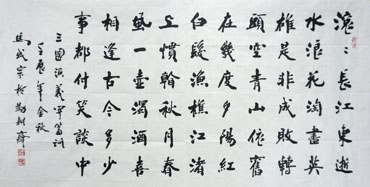 滾〻長江東逝
水浪花淘盡英
雄是非成敗轉
頭空青山依舊
在幾度夕陽紅
白髮漁樵江渚
上慣看秋月春
風一壺濁酒喜
相逢古今多少
事都付笑談中
三國演義開篇詞
壬辰年金秋